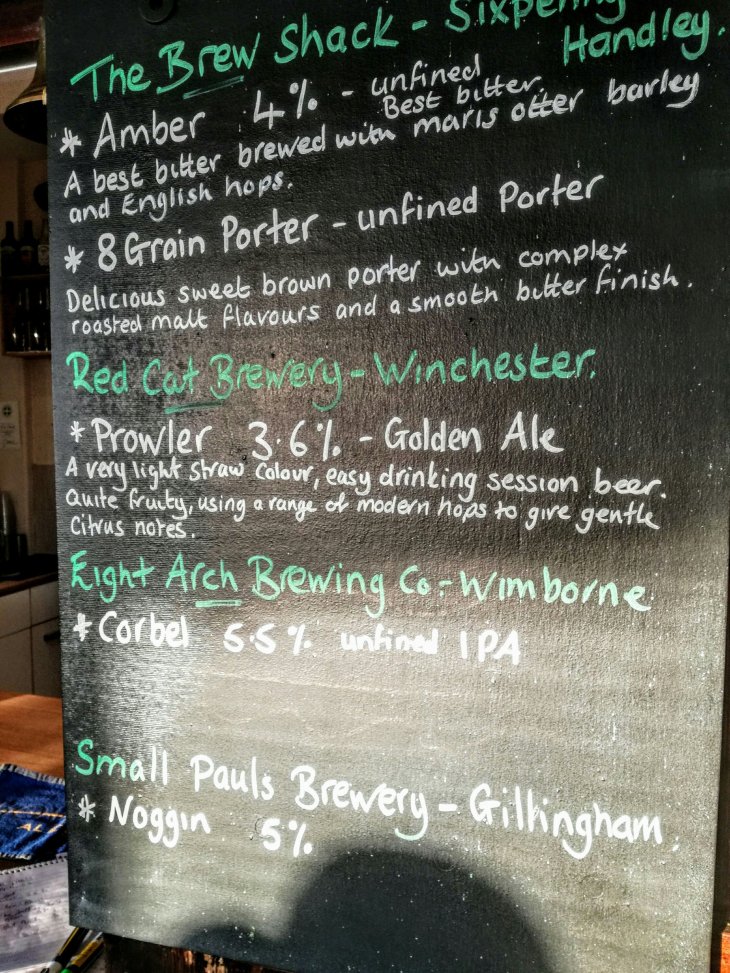 The Brew Shack - Sixpenny
Handley.
* Amber 4% - unfined
Best bitter.
A best bitter brewed with maris otter barley
and English hops.
* 8 Grain Porter - unfined Porter
Delicious sweet brown porter with complex
roasted malt flavours and a smooth bitter finish.
Red Cat Brewery - Winchester.
* Prowler 3.6% - Golden Ale
A very light straw colour, easy drinking session beer.
Quite fruity, using a range of modern hops to give gentle
citrus notes.
Eight Arch Brewing Co - Wimborne
* Corbel 5.5% unfined IPA
Small Pauls Brewery - Gillingham.
* Noggin 5%